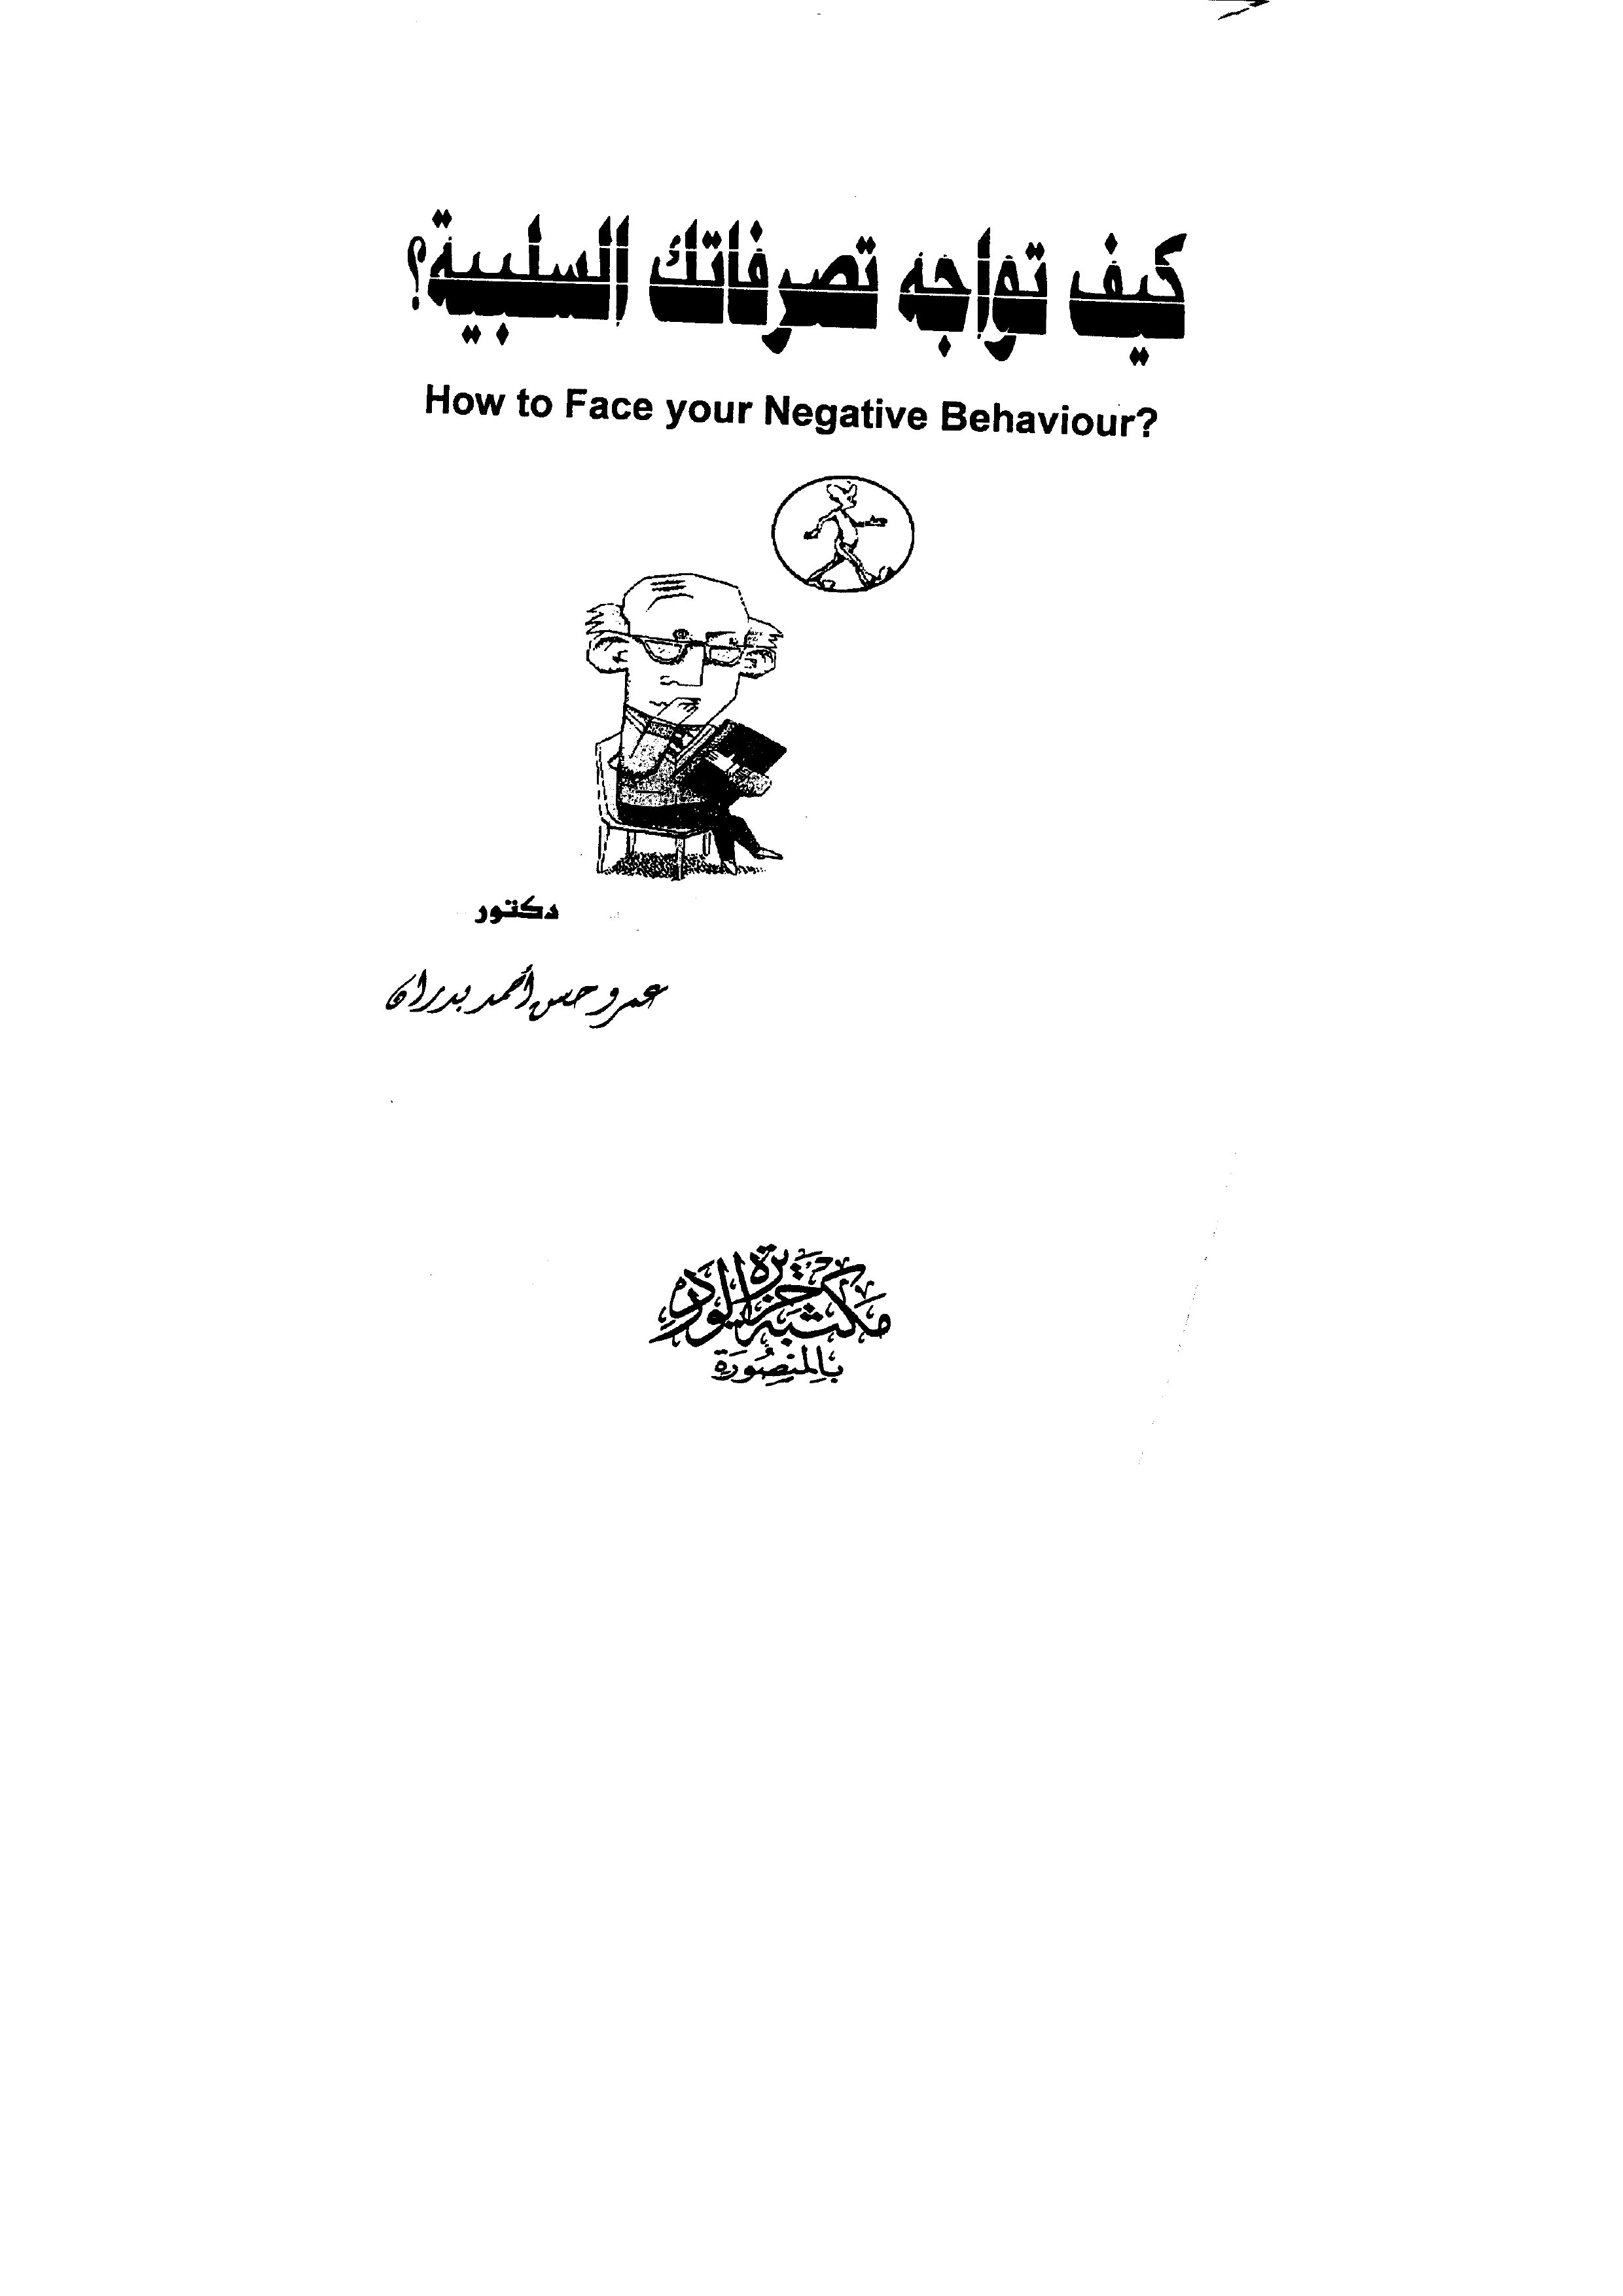 كيف تواجه تصرفاتك السلبية؟
How to Face your Negative Behaviour?
دكتور
عمرو حسن أحمد بدران
مكتبة جزيرة الورد
بالمنصورة